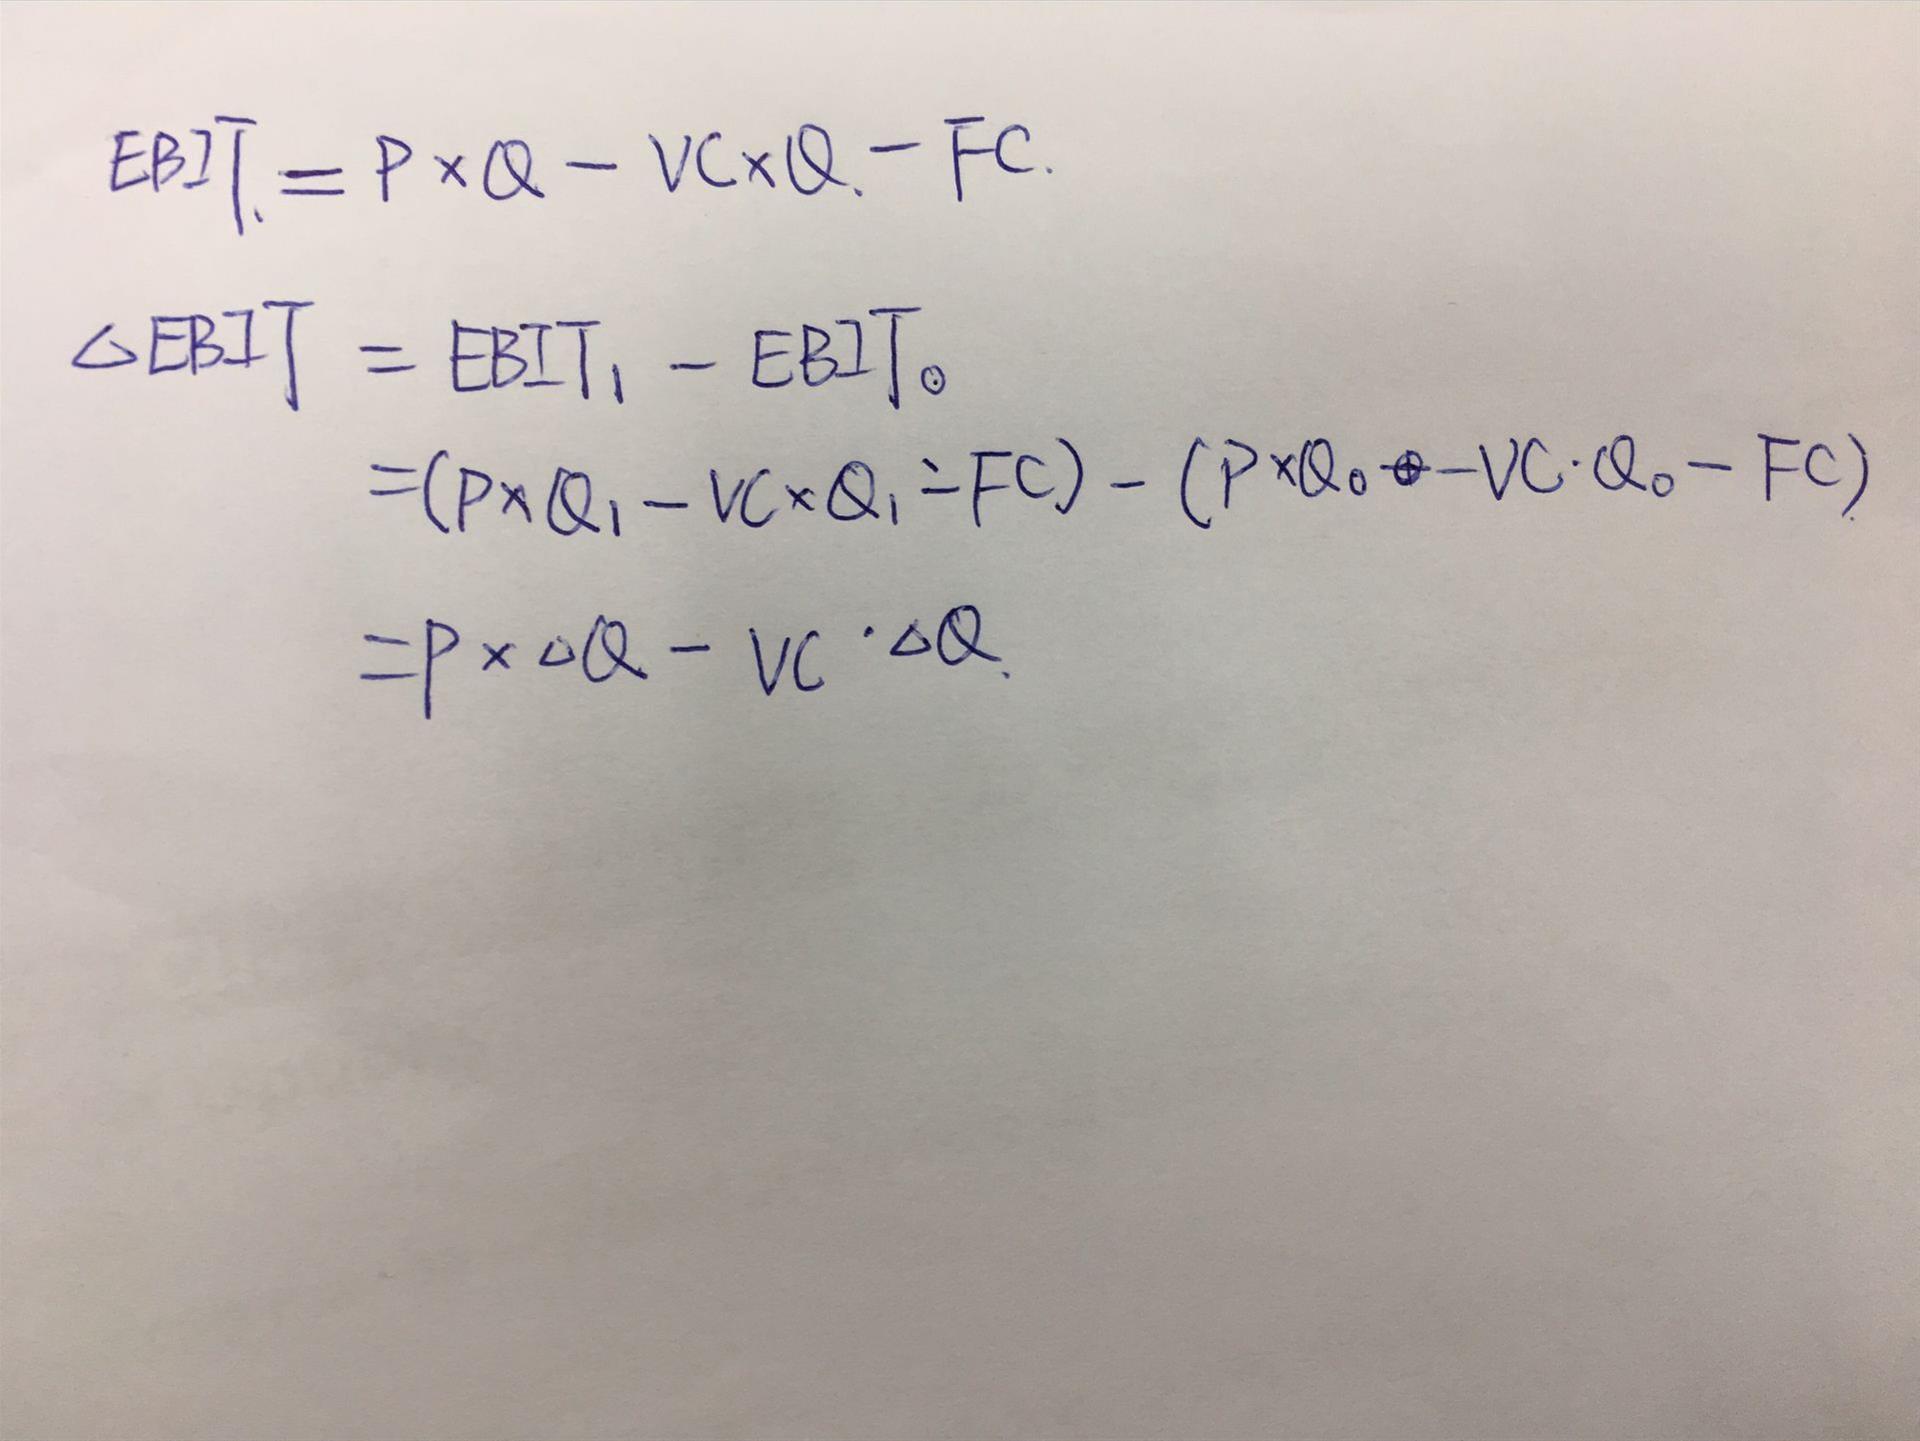 EBIT. = P × Q − VC × Q. − FC.
△EBIT = EBIT₁ − EBIT₀
=(P × Q₁ − VC × Q₁ − FC) − (P × Q₀ − VC · Q₀ − FC)
= P × △Q − VC · △Q.